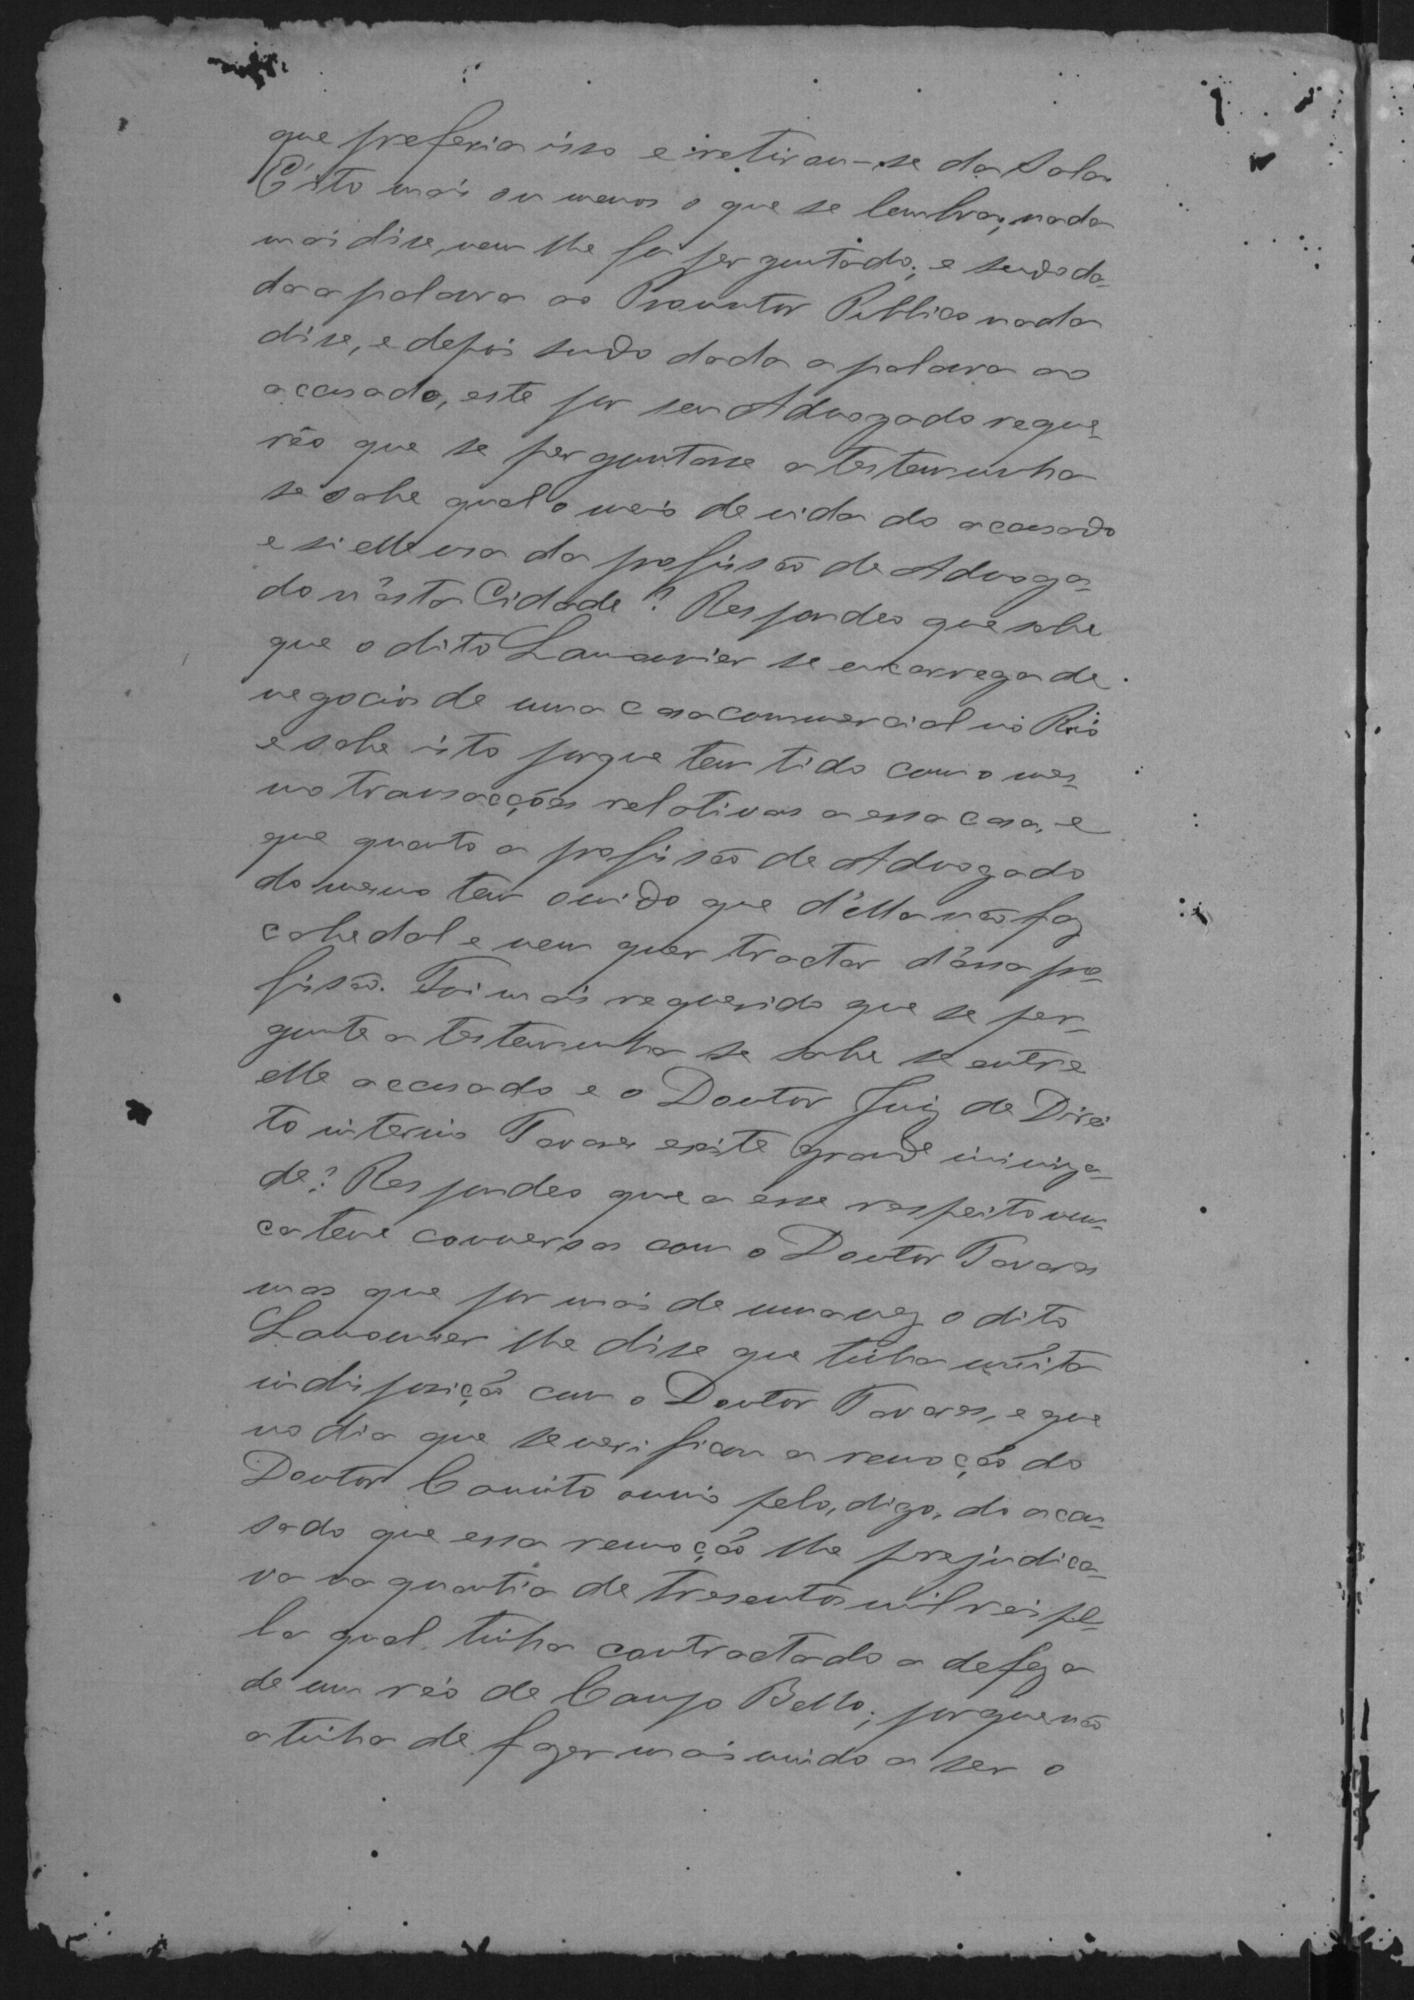 que preferia isso e retirou-se da Sala.
É isto mais ou menos o que se lembra; nada
mais disse, nem lhe foi perguntado; e sendo da-
da a palavra ao Promotor Publico nada
disse, e depois sendo dada a palavra ao
accusado, este por seu Advogado reque-
réo que se perguntasse a testemunha
se sabe qual o meio de vida do accusado
e si elle usa da profissão de Advoga-
do n'ésta Cidade? Respondeo que sabe
que o dito Lamounier se encarrega de
negocios de uma casa commercial no Rio
e sabe isto porque tem tido com o mes-
mo transacções relativas a essa casa, e
que quanto a profissão de Advogado
do mesmo tem ouvido que d'élla não faz
cabedal e nem quer tractar d'éssa pro-
fissão. Foi mais requerido que se per-
gunte a testemunha se sabe se entre
elle accusado e o Doutor Juiz de Direi-
to interino Tavares existe grande inimiza-
de? Respondeo que a esse respeito nun-
ca teve conversas com o Doutor Tavares
mas que por mais de uma vez o dito
Lamounier lhe disse que tinha muita
indisposição com o Doutor Tavares, e que
no dia que se verificou a remoção do
Doutor Couuto ouvio pelo, digo, do accu-
sado que essa remoção lhe prejudica-
va na quantia de tresentos mil reis pe-
la qual tinha contractado a defeza
de um réo de Campo Bello; porque não
a tinha de fazer mais vindo a ser o